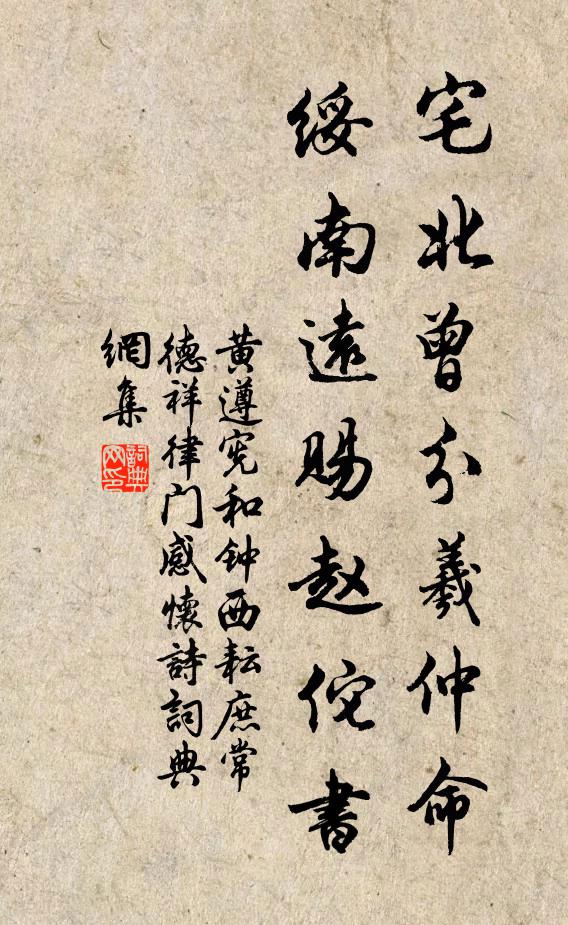 宅北曾分羲仲命
綏南遠賜赵佗書
黄遵宪和钟西耘庶常
德祥律门感懷詩詞典
網集
詞典
网印